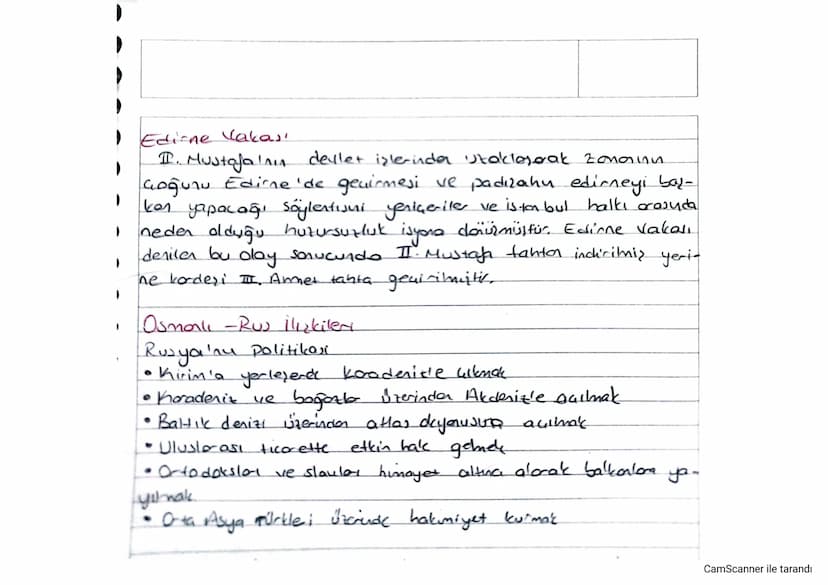 Edirne Vakası
II. Mustafa'nın devlet işlerinden uzaklaşarak zamanın
çoğunu Edirne'de geçirmesi ve padişahın edirneyi baş-
kent yapacağı söylentisini yeniçeriler ve istanbul halkı arasında
neden olduğu huzursuzluk isyana dönüşmüştür. Edirne Vakası
denilen bu olay sonucunda II. Mustafa tahtan indirilmiş yeri-
ne kardeşi III. Ahmet tahta geçirilmiştir.
Osmanlı - Rus İlişkileri
Rusya'nın Politikası
• Kırım'a yerleşerek Karadeniz'e çıkmak
• Karadeniz ve boğazlar üzerinden Akdeniz'e açılmak
• Baltık denizi üzerinden atlas okyonusuna açılmak
• Uluslarası ticarette etkin hale gelmek
• Ortodoksları ve slavları himayet altına alarak balkanlara ya-
yılmak
• Orta Asya Türkleri üzerinde hakimiyet kurmak
CamScanner ile tarandı